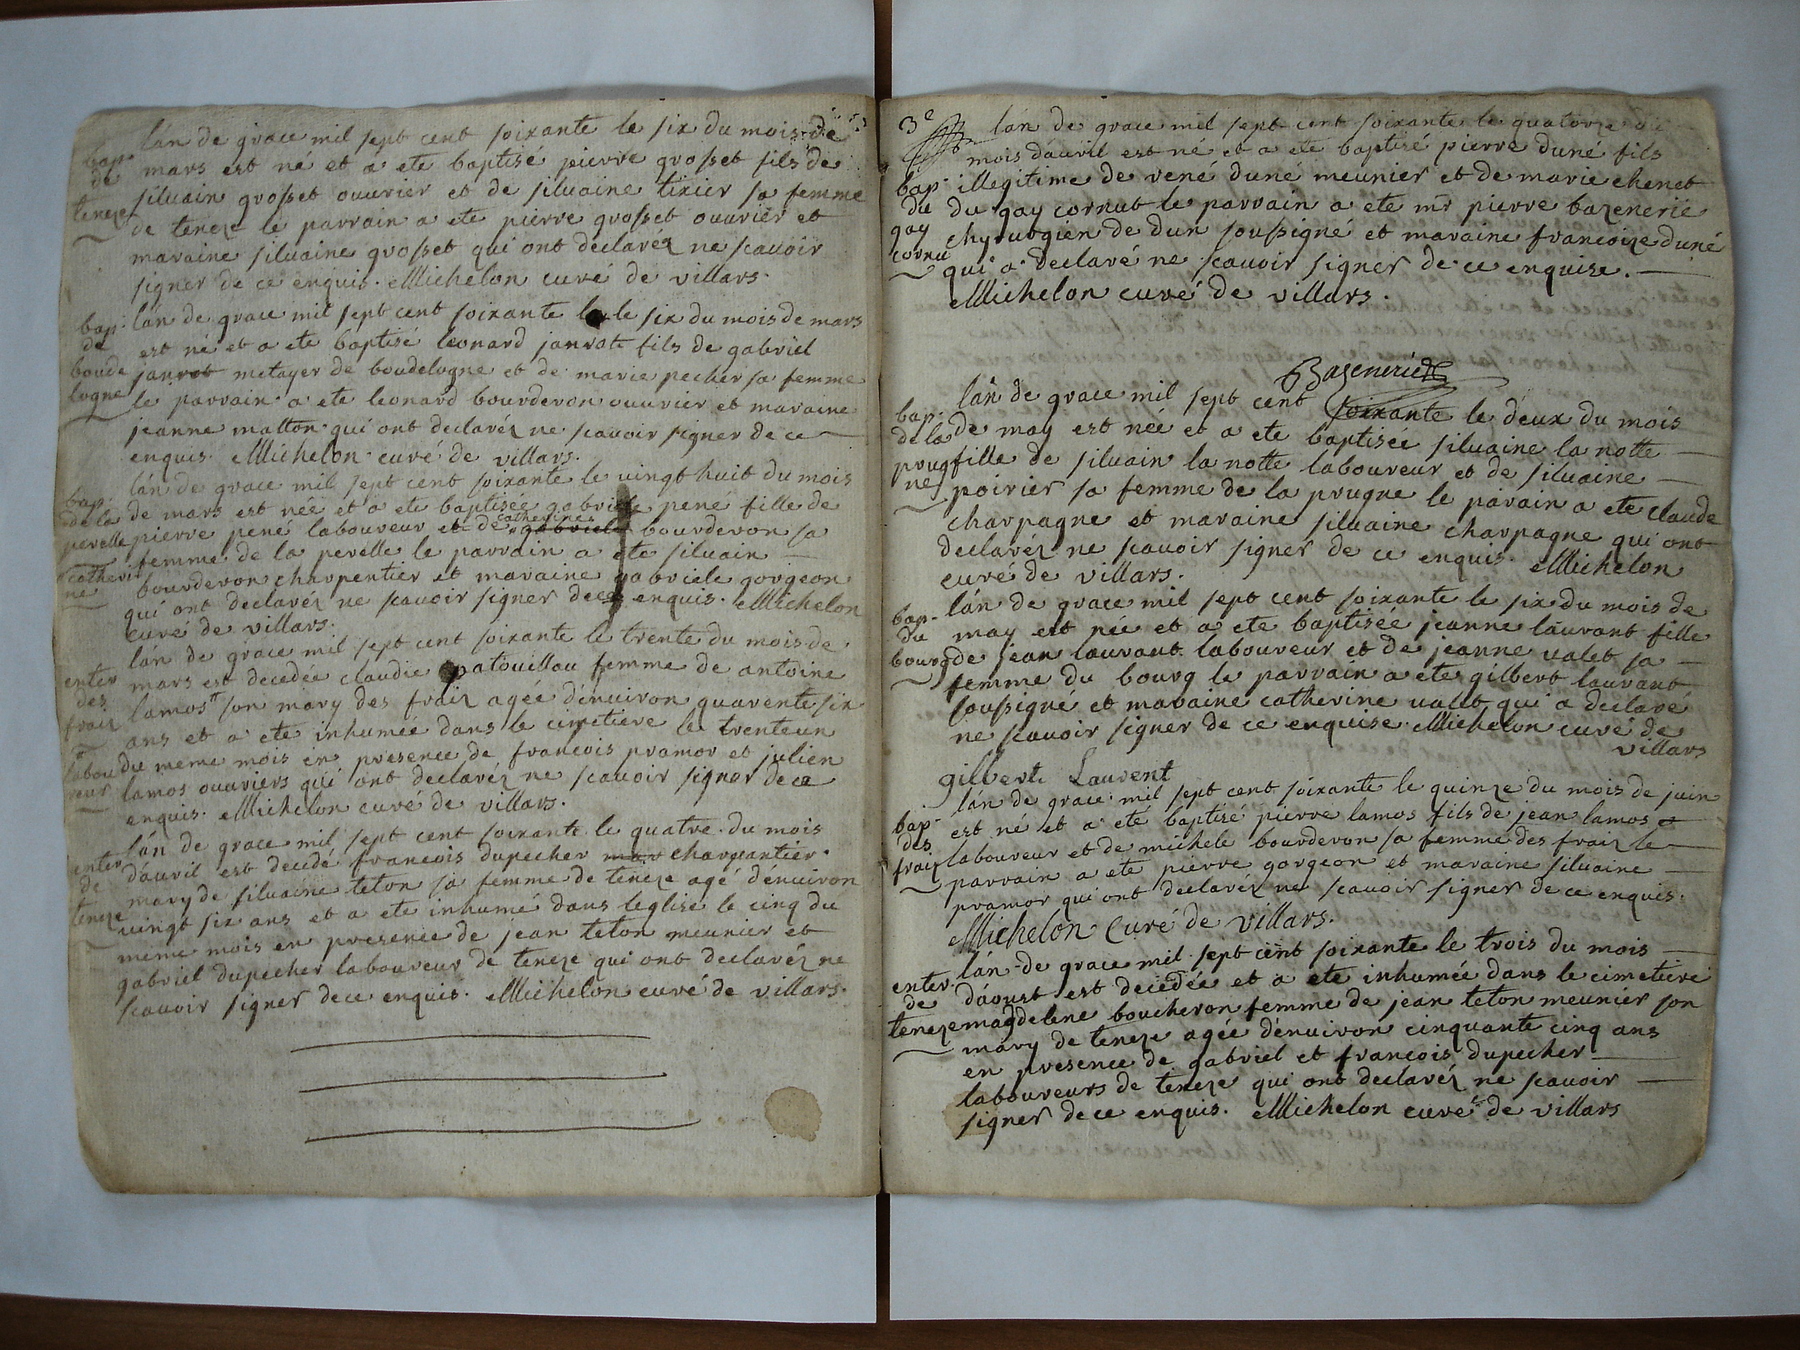 lan de grace mil sept cent soixante le six du mois de
bap. de teneze
mars est né et a ete baptisé pierre grosset fils de
siluain grosset ouurier et de siluaine tixier sa femme
de teneze le parrain a ete pierre grosset ouurier et
maraine siluaine grosset qui ont declaréz ne scauoir
signer de ce enquis. Michelon curé de villars.
bap. de boudelogne
lan de grace mil sept cent soixante le six du mois de mars
est né et a ete baptisé leonard janrot fils de gabriel
janrot metayer de boudelogne et de marie pecher sa femme
le parrain a ete leonard bourderon ouurier et maraine
jeanne matton qui ont declaréz ne scauoir signer de ce
enquis. Michelon curé de villars.
bap. de la perelle
catherine
lan de grace mil sept cent soixante le uingt huit du mois
de mars est née et a ete baptisée gabriele pené fille de
pierre pené laboureur et de catherine gabriele bourderon sa
femme de la perelle le parrain a ete siluain
bourderon charpentier et maraine gabriele gorgeon
qui ont declaréz ne scauoir signer de ce enquis. Michelon
curé de villars.
enter des fraiz
laboureur
lan de grace mil sept cent soixante le trente du mois de
mars est decedée claudie patouillou femme de antoine
lamos son mary des fraiz agée denuiron quarente six
ans et a ete inhumée dans le cimetiere le trenteun
du meme mois en presence de francois pramor et julien
lamos ouuriers qui ont declaréz ne scauoir signer de ce
enquis. Michelon curé de villars.
enter de teneze
lan de grace mil sept cent soixante le quatre du mois
dauril est decede francois dupecher mar charpantier
mary de siluaine teton sa femme de teneze agé denuiron
uingt six ans et a ete inhumé dans leglise le cinq du
meme mois en presence de jean teton meunier et
gabriel dupecher laboureur de teneze qui ont declaréz ne
scauoir signer de ce enquis. Michelon curé de villars.
3e
lan de grace mil sept cent soixante le quatorze du
mois dauril est né et a ete baptisé pierre duné fils
bap. du gay cornu
illegitime de rené duné meunier et de marie chenet
du gay cornut le parrain a ete mr pierre bazenerie
chyrurgien de dun soussigné et maraine francoize duné
qui a declaré ne scauoir signer de ce enquise.
Michelon curé de villars.
Bazenerie
bap. de la prugne
lan de grace mil sept cent soixante le deux du mois
de may est née et a ete baptisée siluaine la notte
fille de siluain la notte laboureur et de siluaine
poirier sa femme de la prugne le parain a ete claude
charpagne et maraine siluaine charpagne qui ont
declaréz ne scauoir signer de ce enquis. Michelon
curé de villars.
bap. du bourg
lan de grace mil sept cent soixante le six du mois de
may est née et a ete baptisée jeanne laurant fille
de jean laurant laboureur et de jeanne valet sa
femme du bourg le parrain a ete gilbert laurant
soussigné et maraine catherine valet qui a declaré
ne scauoir signer de ce enquise. Michelon curé de
villars
gilbert Laurent
bap. des fraiz
lan de grace mil sept cent soixante le quinze du mois de juin
est né et a eté baptisé pierre lamos fils de jean lamos
laboureur et de michele bourderon sa femme des fraiz le
parrain a ete pierre gorgeon et maraine siluaine
pramor qui ont declaréz ne scauoir signer de ce enquis.
Michelon Curé de villars.
enter. de teneze
lan de grace mil sept cent soixante le trois du mois
daoust est decedée et a ete inhumée dans le cimetiere
magdelene boucheron femme de jean teton meunier son
mary de teneze agée denuiron cinquante cinq ans
en presence de gabriel et francois dupecher
laboureurs de teneze qui ont declaréz ne scauoir
signer de ce enquis. Michelon curé de villars